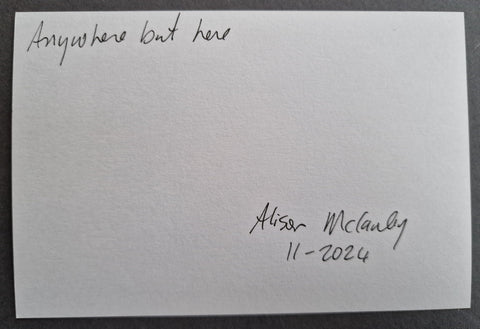 Anywhere but here
Alison McCauley
11-2024